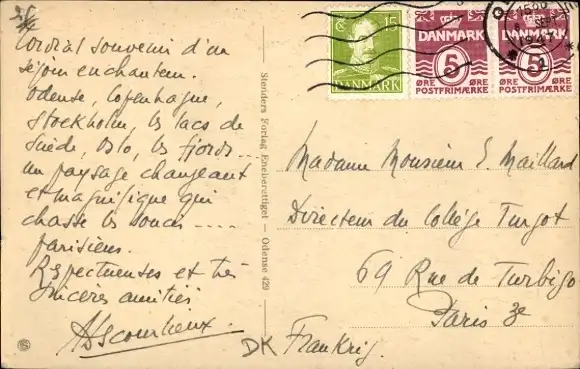 Cordial souvenir d'un
séjour enchanteur.
Odense, Copenhague,
Stockholm, les lacs de
Suède, Oslo, les fjords....
un paysage changeant
et magnifique qui
chasse les soucis....
parisiens.
Respectueuses et très
sincères amitiés
Stenders Forlag Eneberettiget — Odense 429
15
DANMARK
DANMARK
5
ØRE ØRE
POSTFRIMÆRKE
DANMARK
5
ØRE ØRE
POSTFRIMÆRKE
Madame Monsieur E. Maillard
Directeur du Collège Turgot
69 Rue de Turbigo
Paris 3e
DK Frankrig.